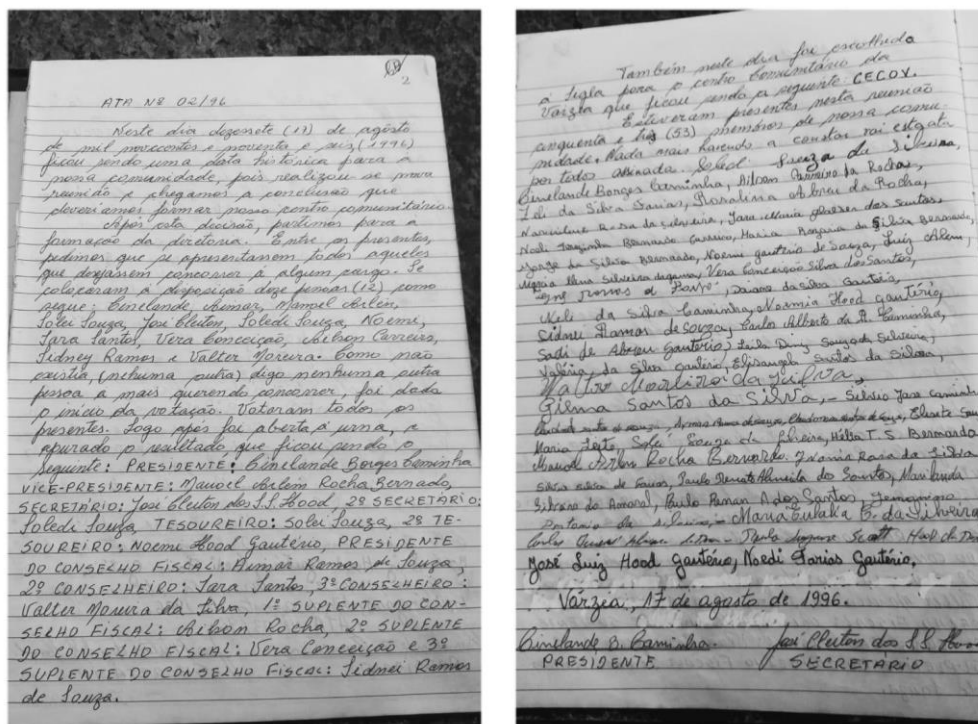 2
ATA Nº 02/96
Neste dia dezessete (17) de agosto
de mil novecentos e noventa e seis, (1996)
ficou sendo uma data histórica para a
nossa comunidade, pois realizou-se nova
reunião e chegamos a conclusão que
deveríamos formar nosso centro comunitário.
Após esta decisão, partimos para a
formação da diretoria. Entre os presentes,
pedimos que se apresentassem todos aqueles
que desejassem concorrer à algum cargo. Se
colocaram a disposição doze pessoas (12) como
segue: Cinelande, Aimar, Manoel Arlem,
Solei Souza, José Cleiton, Soledi Souza, Noemi,
Sara Santos, Vera Conceição, Adson Carreiro,
Sidney Ramos e Valter Moreira. Como não
existia, (nenhuma outra) digo nenhuma outra
pessoa a mais querendo concorrer, foi dada
o início da votação. Votaram todos os
presentes. Logo após foi aberta a urna, e
apurado o resultado que ficou sendo o
seguinte: PRESIDENTE: Cinelande Borges Caminha
VICE-PRESIDENTE: Manoel Arlem Rocha Bernado,
SECRETÁRIO: José Cleiton dos S.S. Hood, 2º SECRETÁRIO:
Soledi Souza, TESOUREIRO: Solei Souza, 2º TE-
SOUREIRO: Noemi Hood Gautério, PRESIDENTE
DO CONSELHO FISCAL: Aimar Ramos de Souza,
2º CONSELHEIRO: Sara Santos, 3º CONSELHEIRO:
Valter Moreira da Silva, 1º SUPLENTE DO CON-
SELHO FISCAL: Rocha, 2º SUPLENTE
DO CONSELHO FISCAL: Vera Conceição e 3º
SUPLENTE DO CONSELHO FISCAL: Sidnei Ramos
de Souza.
Também neste dia foi escolhida
a sigla para o centro Comunitário da
Várzia que ficou sendo a seguinte: CECOV.
Estiveram presentes nesta reunião
cinquenta e três (53) membros de nossa comu-
nidade. Nada mais havendo a constar vai esta ata
por todos assinada. Souza da Silveira,
Cinelande Borges Caminha, Carreiro da Rocha,
Leli da Silva Farias, Rosalina Abreu da Rocha,
Rosa da Silveira, dos Santos,
Bernardo Carreiro, Maria Rosaria da Silva Bernardo,
Jorge da Silva Bernardo, Noemi Gautério de Souza, Luiz
Silveira, Vera Conceição Silva dos Santos,
da Silva Gautério,
Keli da Silva Caminha, Noemia Hood Gautério,
Sidnei Ramos de Souza, Paulo Alberto da R. Caminha,
Sadi de Abreu Gautério, Leila Diniz Souza da Silveira,
Valéria da Silva Gautério, Elisangela Santos da Silva,
da Silva,
Gilma Santos da Silva,
Maria Souza da Silveira, T. S. Bernardo
Manoel Arlem Rocha Bernardo, da Silva
de Farias, Paulo Renato Almeida dos Santos,
do Amaral, Paulo Renan A dos Santos,
Maria Eulalia B. da Silveira
José Luiz Hood Gautério, Noedi Farias Gautério.
Várzia, 17 de agosto de 1996.
Cinelande B. Caminha. José Cleiton dos S.S. Hood
PRESIDENTE SECRETÁRIO